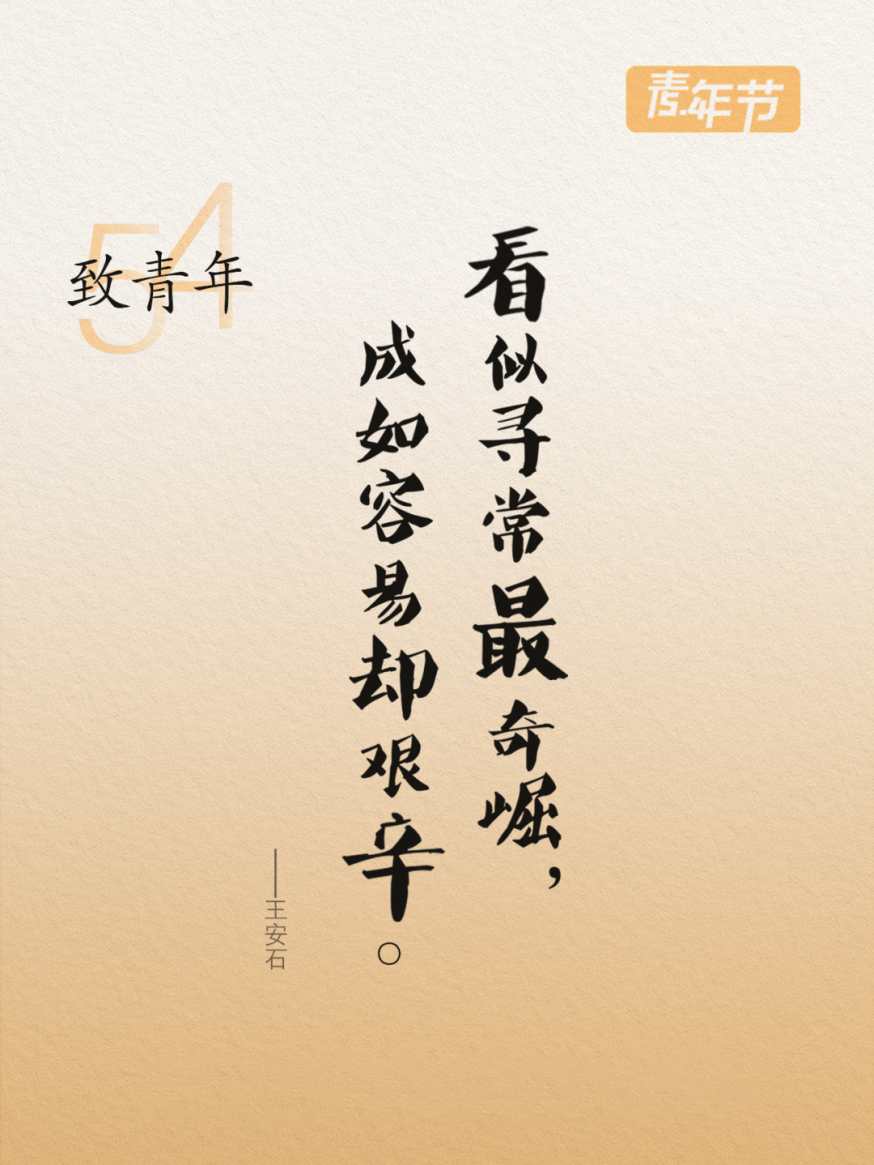 青年节
54
致青年
看似寻常最奇崛，
成如容易却艰辛。
——王安石